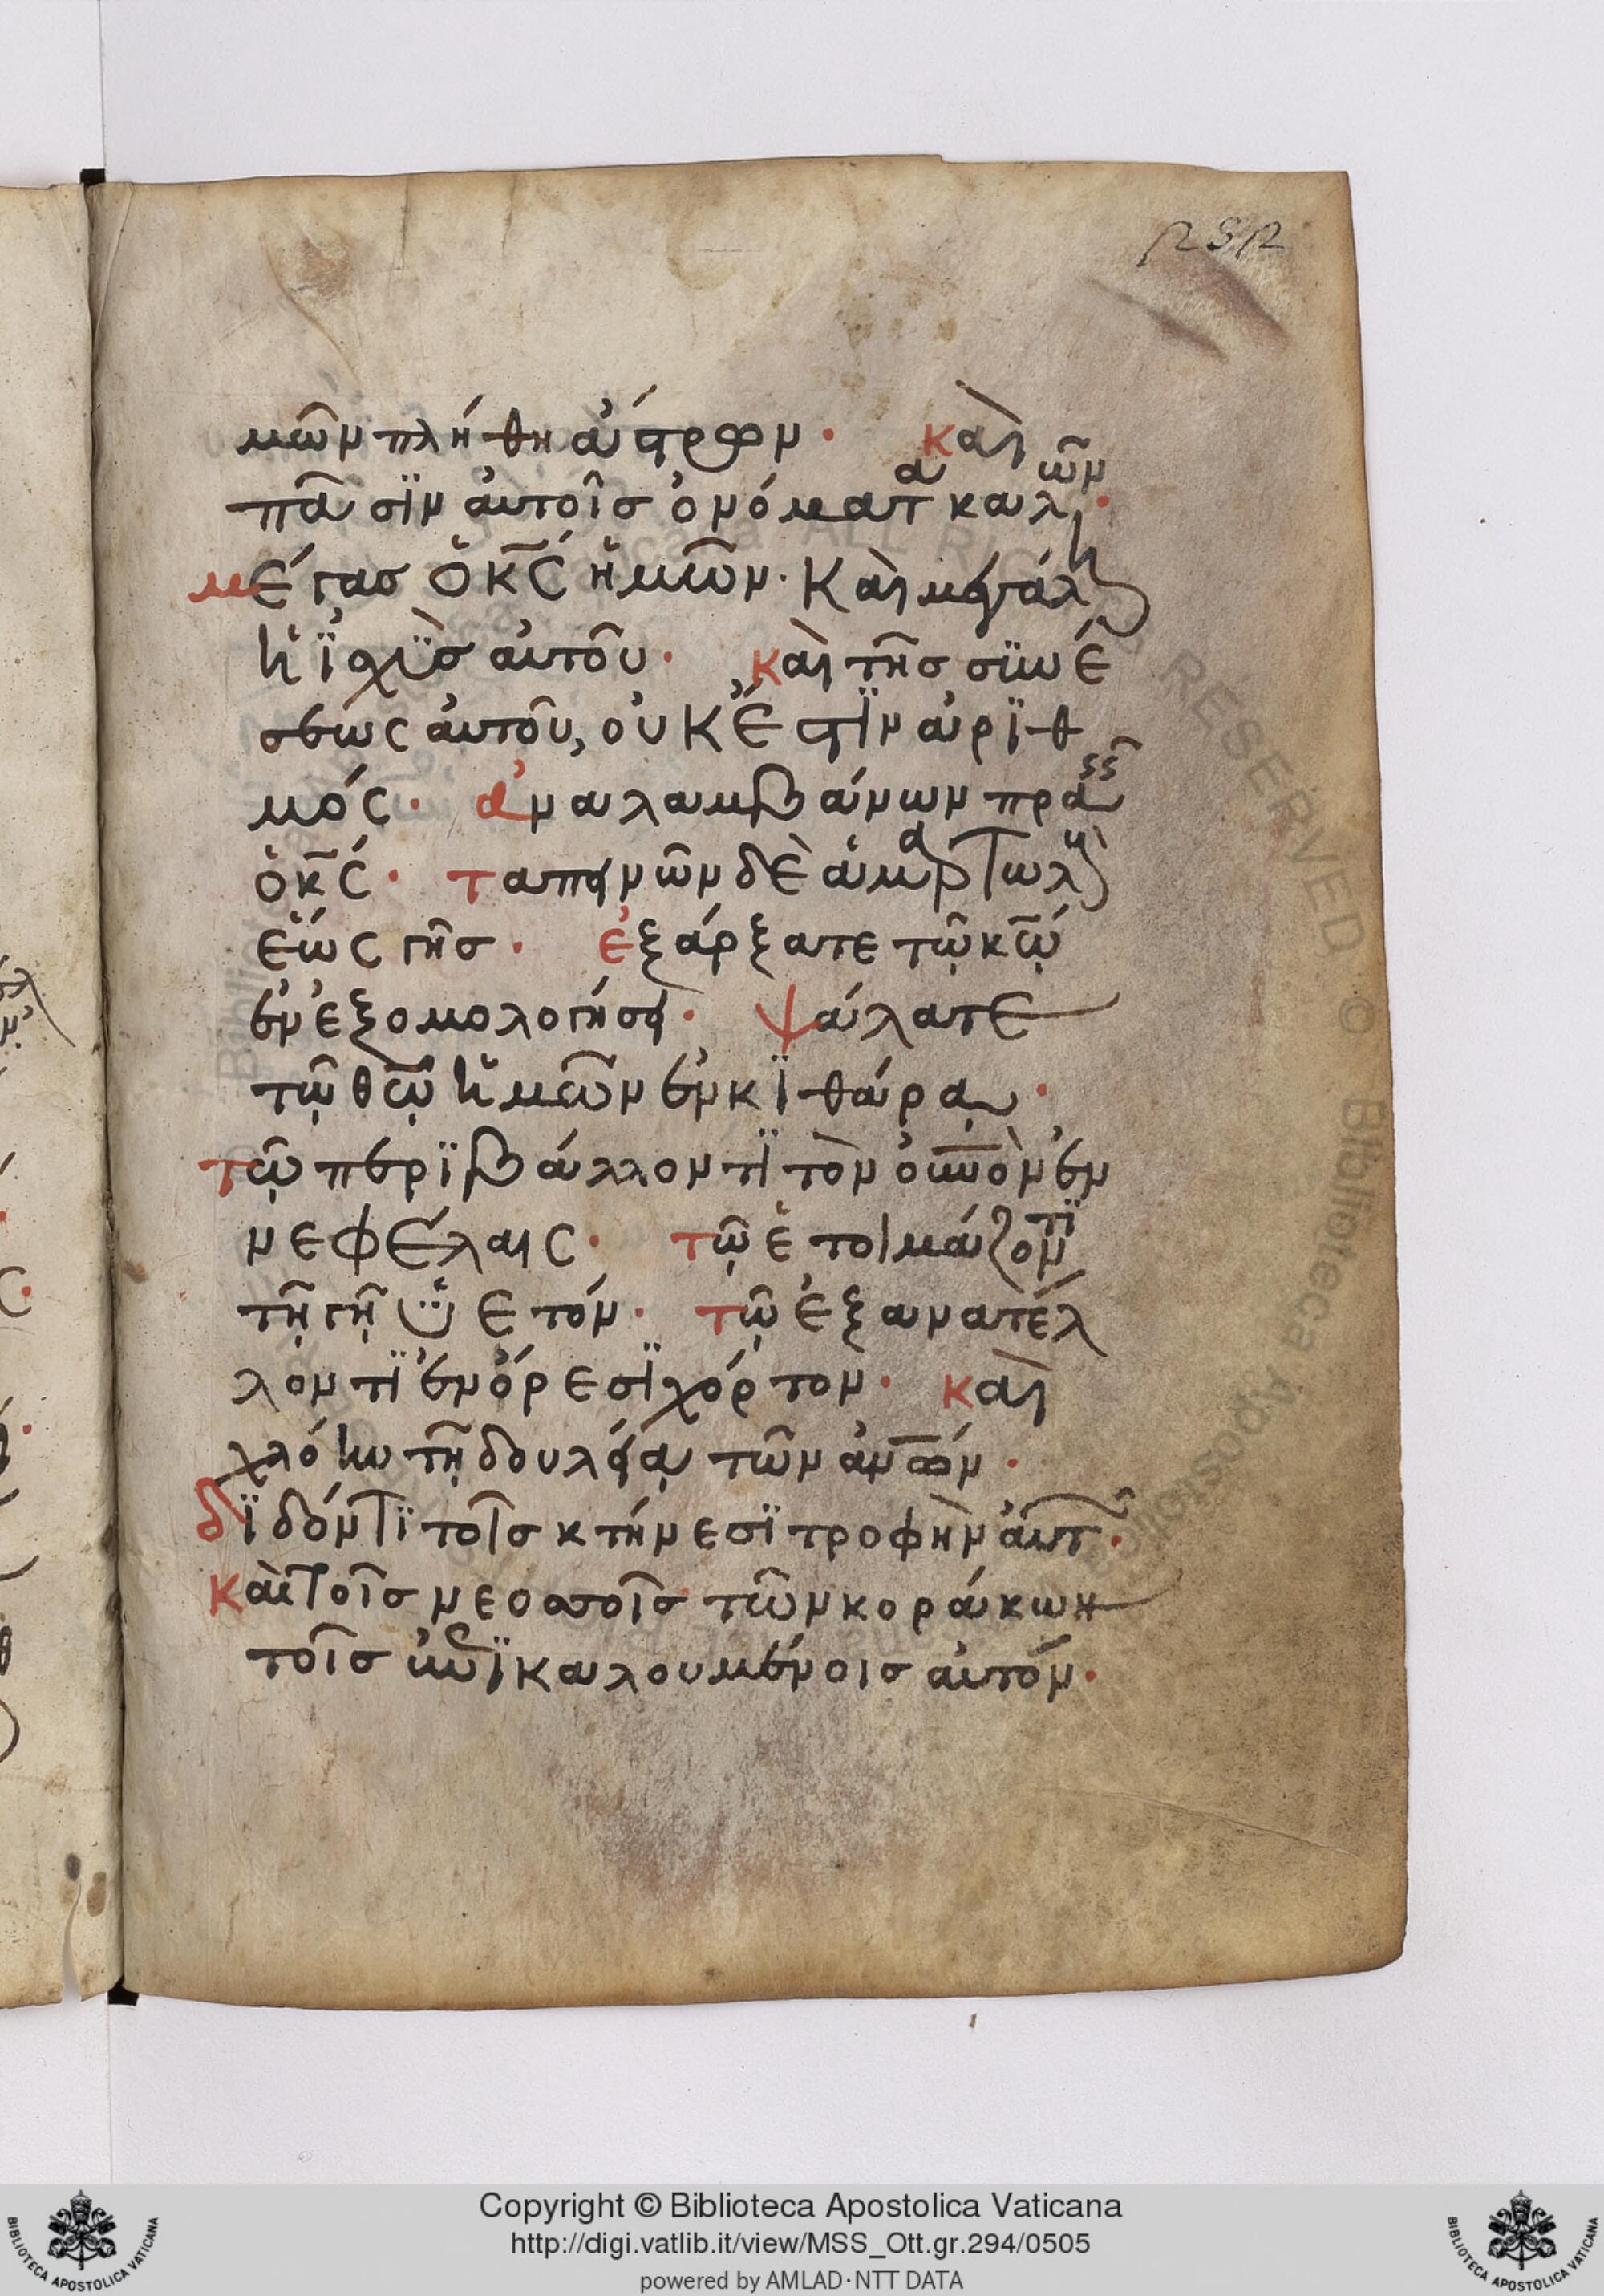 252
μῶν πλήθη ἄστρων· καὶ
πᾶσϊν αὐτοῖσ ὀνόματα καλῶν·
μέγασ ὁ κ̅ς̅ ἡμῶν· Καὶ μεγάλη
ἡ ἰ̈σχὺ̈σ αὐτοῦ· καὶ τῆσ συνέ
σεως αὐτοῦ, οὐκ ἔστϊν ἀρϊθ
μός· ἀναλαμβάνων πραεῖς
ὁ κ̅ς̅· ταπεινῶν δὲ ἁμαρτωλοὺς
ἕως γῆσ· ἐξάρξατε τῷ κ̅ω̅
ἐν ἐξομολογήσει· ψάλατε
τῷ θ̅ω̅ ἡμῶν ἐν κϊθάρᾳ·
τῷ περϊβάλλοντϊ τὸν ο̅υ̅ν̅ο̅ν̅ ἐν
νεφέλαις· τῷ ἑτοιμάζοντϊ
τῇ γῇ ὑ̈ετόν· τῷ ἐξανατέλ
λοντϊ ἐν ὄρεσϊ χόρτον· καὶ
χλόην τῇ δουλείᾳ τῶν α̅ν̅ω̅ν̅·
δϊδόντϊ τοῖσ κτήνεσϊ τροφὴν αὐτῶν·
Καὶ τοῖσ νεοσσοῖσ τῶν κοράκων
τοῖσ ἐπϊκαλουμένοισ αὐτόν·
Copyright © Biblioteca Apostolica Vaticana
http://digi.vatlib.it/view/MSS_Ott.gr.294/0505
powered by AMLAD·NTT DATA
BIBLIOTECA APOSTOLICA VATICANA
BIBLIOTECA APOSTOLICA VATICANA